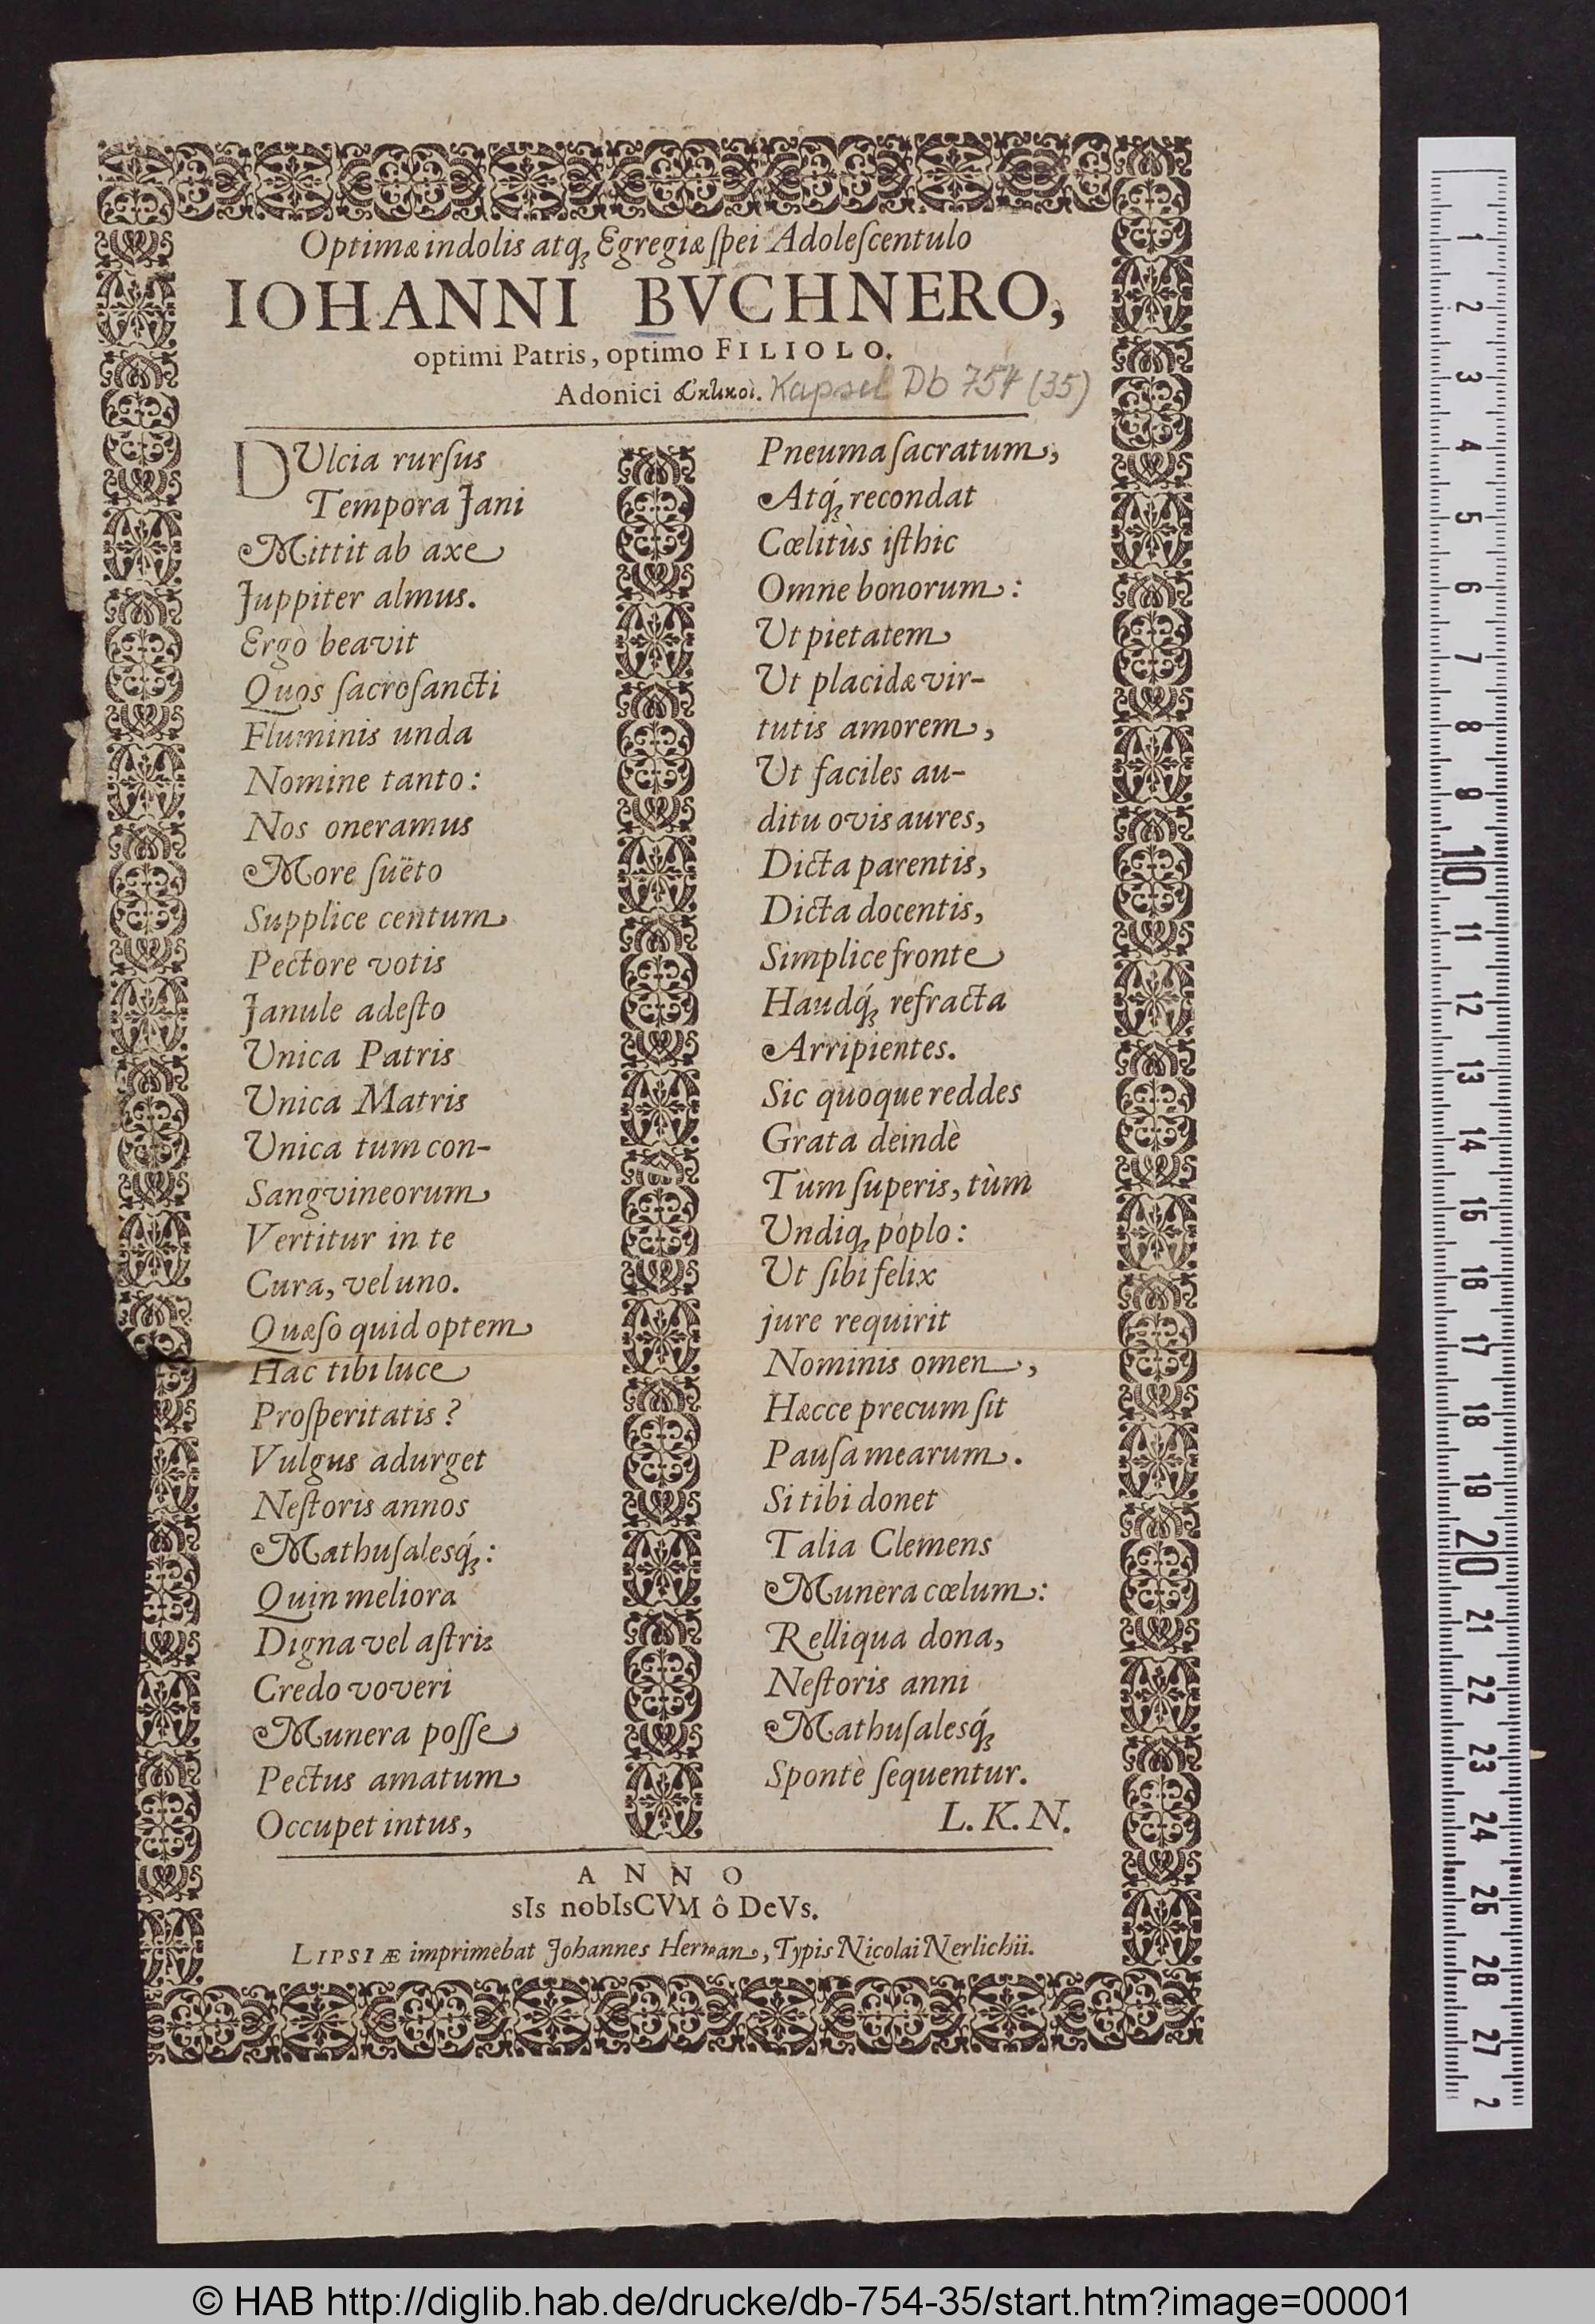 Optimæ indolis atq; Egregiæ ſpei Adoleſcentulo
IOHANNI BVCHNERO,
optimi Patris, optimo FILIOLO.
Adonici
Kapsel Db 754 (35)
DUlcia rurſus
Tempora Jani
Mittit ab axe
Juppiter almus.
Ergò beavit
Quos ſacroſancti
Fluminis unda
Nomine tanto:
Nos oneramus
More ſuëto
Supplice centum
Pectore votis
Janule adeſto
Unica Patris
Unica Matris
Unica tum con-
Sangvineorum
Vertitur in te
Cura, vel uno.
Quæſo quid optem
Hac tibi luce
Proſperitatis?
Vulgus adurget
Neſtoris annos
Mathuſalesq́;:
Quin meliora
Digna vel aſtris
Credo voveri
Munera poſſe
Pectus amatum
Occupet intus,
Pneuma ſacratum,
Atq́; recondat
Cœlitùs iſthic
Omne bonorum:
Ut pietatem
Ut placidæ vir-
tutis amorem,
Ut faciles au-
ditu ovis aures,
Dicta parentis,
Dicta docentis,
Simplice fronte
Haudq́; refracta
Arripientes.
Sic quoque reddes
Grata deindè
Tùm ſuperis, tùm
Undiq; poplo:
Ut ſibi felix
jure requirit
Nominis omen,
Hæcce precum ſit
Pauſa mearum.
Si tibi donet
Talia Clemens
Munera cœlum:
Relliqua dona,
Neſtoris anni
Mathuſalesq́;
Spontè ſequentur.
L. K. N.
ANNO
sIs nobIsCVM ô DeVs.
LIPSIÆ imprimebat Johannes Herman, Typis Nicolai Nerlichii.
1
2
3
4
5
6
7
8
9
10
11
12
13
14
15
16
17
18
19
20
21
22
23
24
25
26
27
2
© HAB http://diglib.hab.de/drucke/db-754-35/start.htm?image=00001